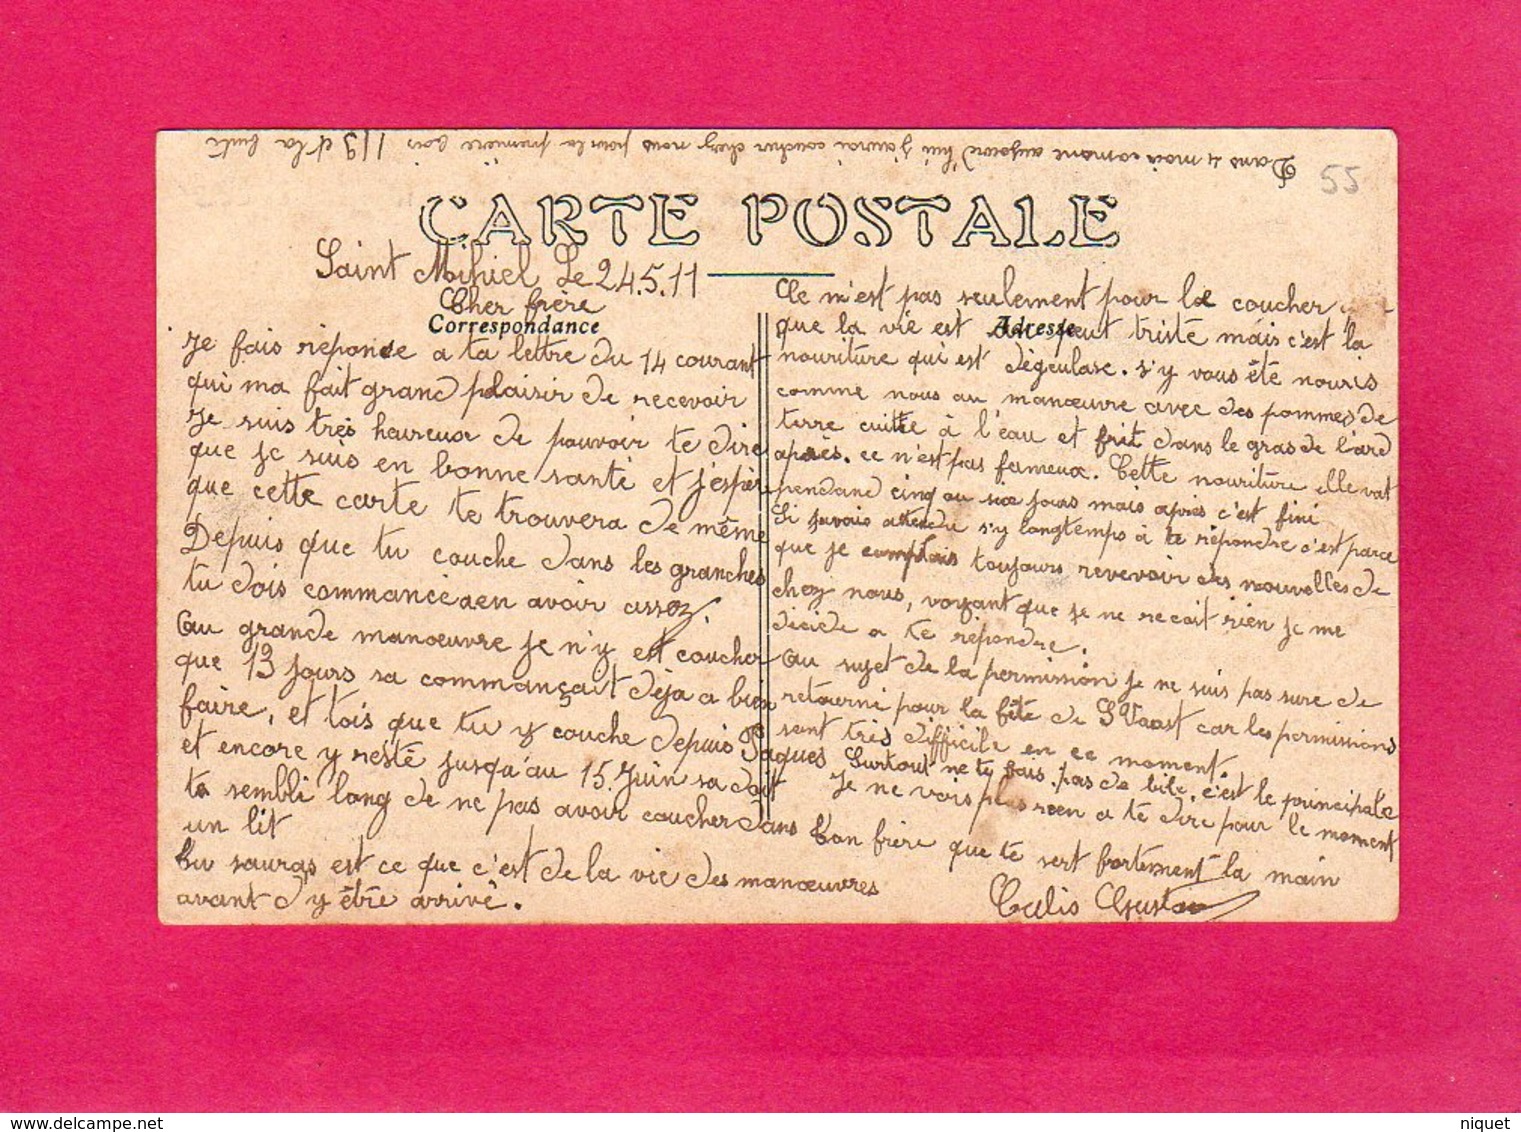 Dans 4 mois comme aujourd'hui j'aurai coucher chez nous pour la première fois 119 d la fuite
55
CARTE POSTALE
Saint Mihiel Le 24.5.11
Cher frère
Correspondance
Je fais réponse a ta lettre du 14 courant
qui ma fait grand plaisir de recevoir
Je suis très heureux de pouvoir te dire
que je suis en bonne santé et j'espère
que cette carte te trouvera de même
Depuis que tu couche dans les granches
tu dois commancé a en avoir assez.
Au grande manœuvre je n'y est coucher
que 13 jours sa commançait déja a bien
faire, et tois que tu y couche depuis Paques
et encore y resté jusqu'au 15 Juin sa doit
te semblé long de ne pas avoir coucher dans
un lit
Tu sauras est ce que c'est de la vie des manœuvres
avant d'y être arrivé.
Adresse
Ce n'est pas seulement pour le coucher
que la vie est un peut triste mais c'est la
nouriture qui est dégeulase. s'y vous été nouris
comme nous au manœuvre avec des pommes de
terre cuitte à l'eau et frit dans le gras de lard
après. ce n'est pas fameux. Cette nouriture elle vat
pendand cinq ou six jours mais après c'est fini
Si javais attendu s'y longtemps à te répondre c'est parce
que je comptais toujours revevoir des nouvelles de
chez nous, voyant que je ne recoit rien je me
décide a te répondre.
Au sujet de la permission je ne suis pas sure de
retourné pour la fête de St Vaast car les permissions
sont très difficile en ce moment.
Surtout ne ty fais pas de bile, c'est le principale
Je ne vois plus rien a te dire pour le moment
Ton frère que te sert fortement la main
Gustave
niquet